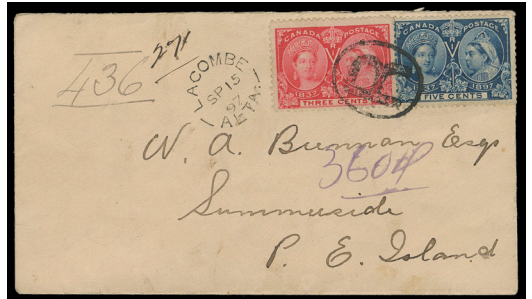 436
271
LACOMBE
SP 15
97
ALTA.
CANADA POSTAGE
1837 1897
THREE CENTS
R
CANADA POSTAGE
1837 1897
FIVE CENTS
W. A. Brennan Esqr
3604
Summerside
P. E. Island